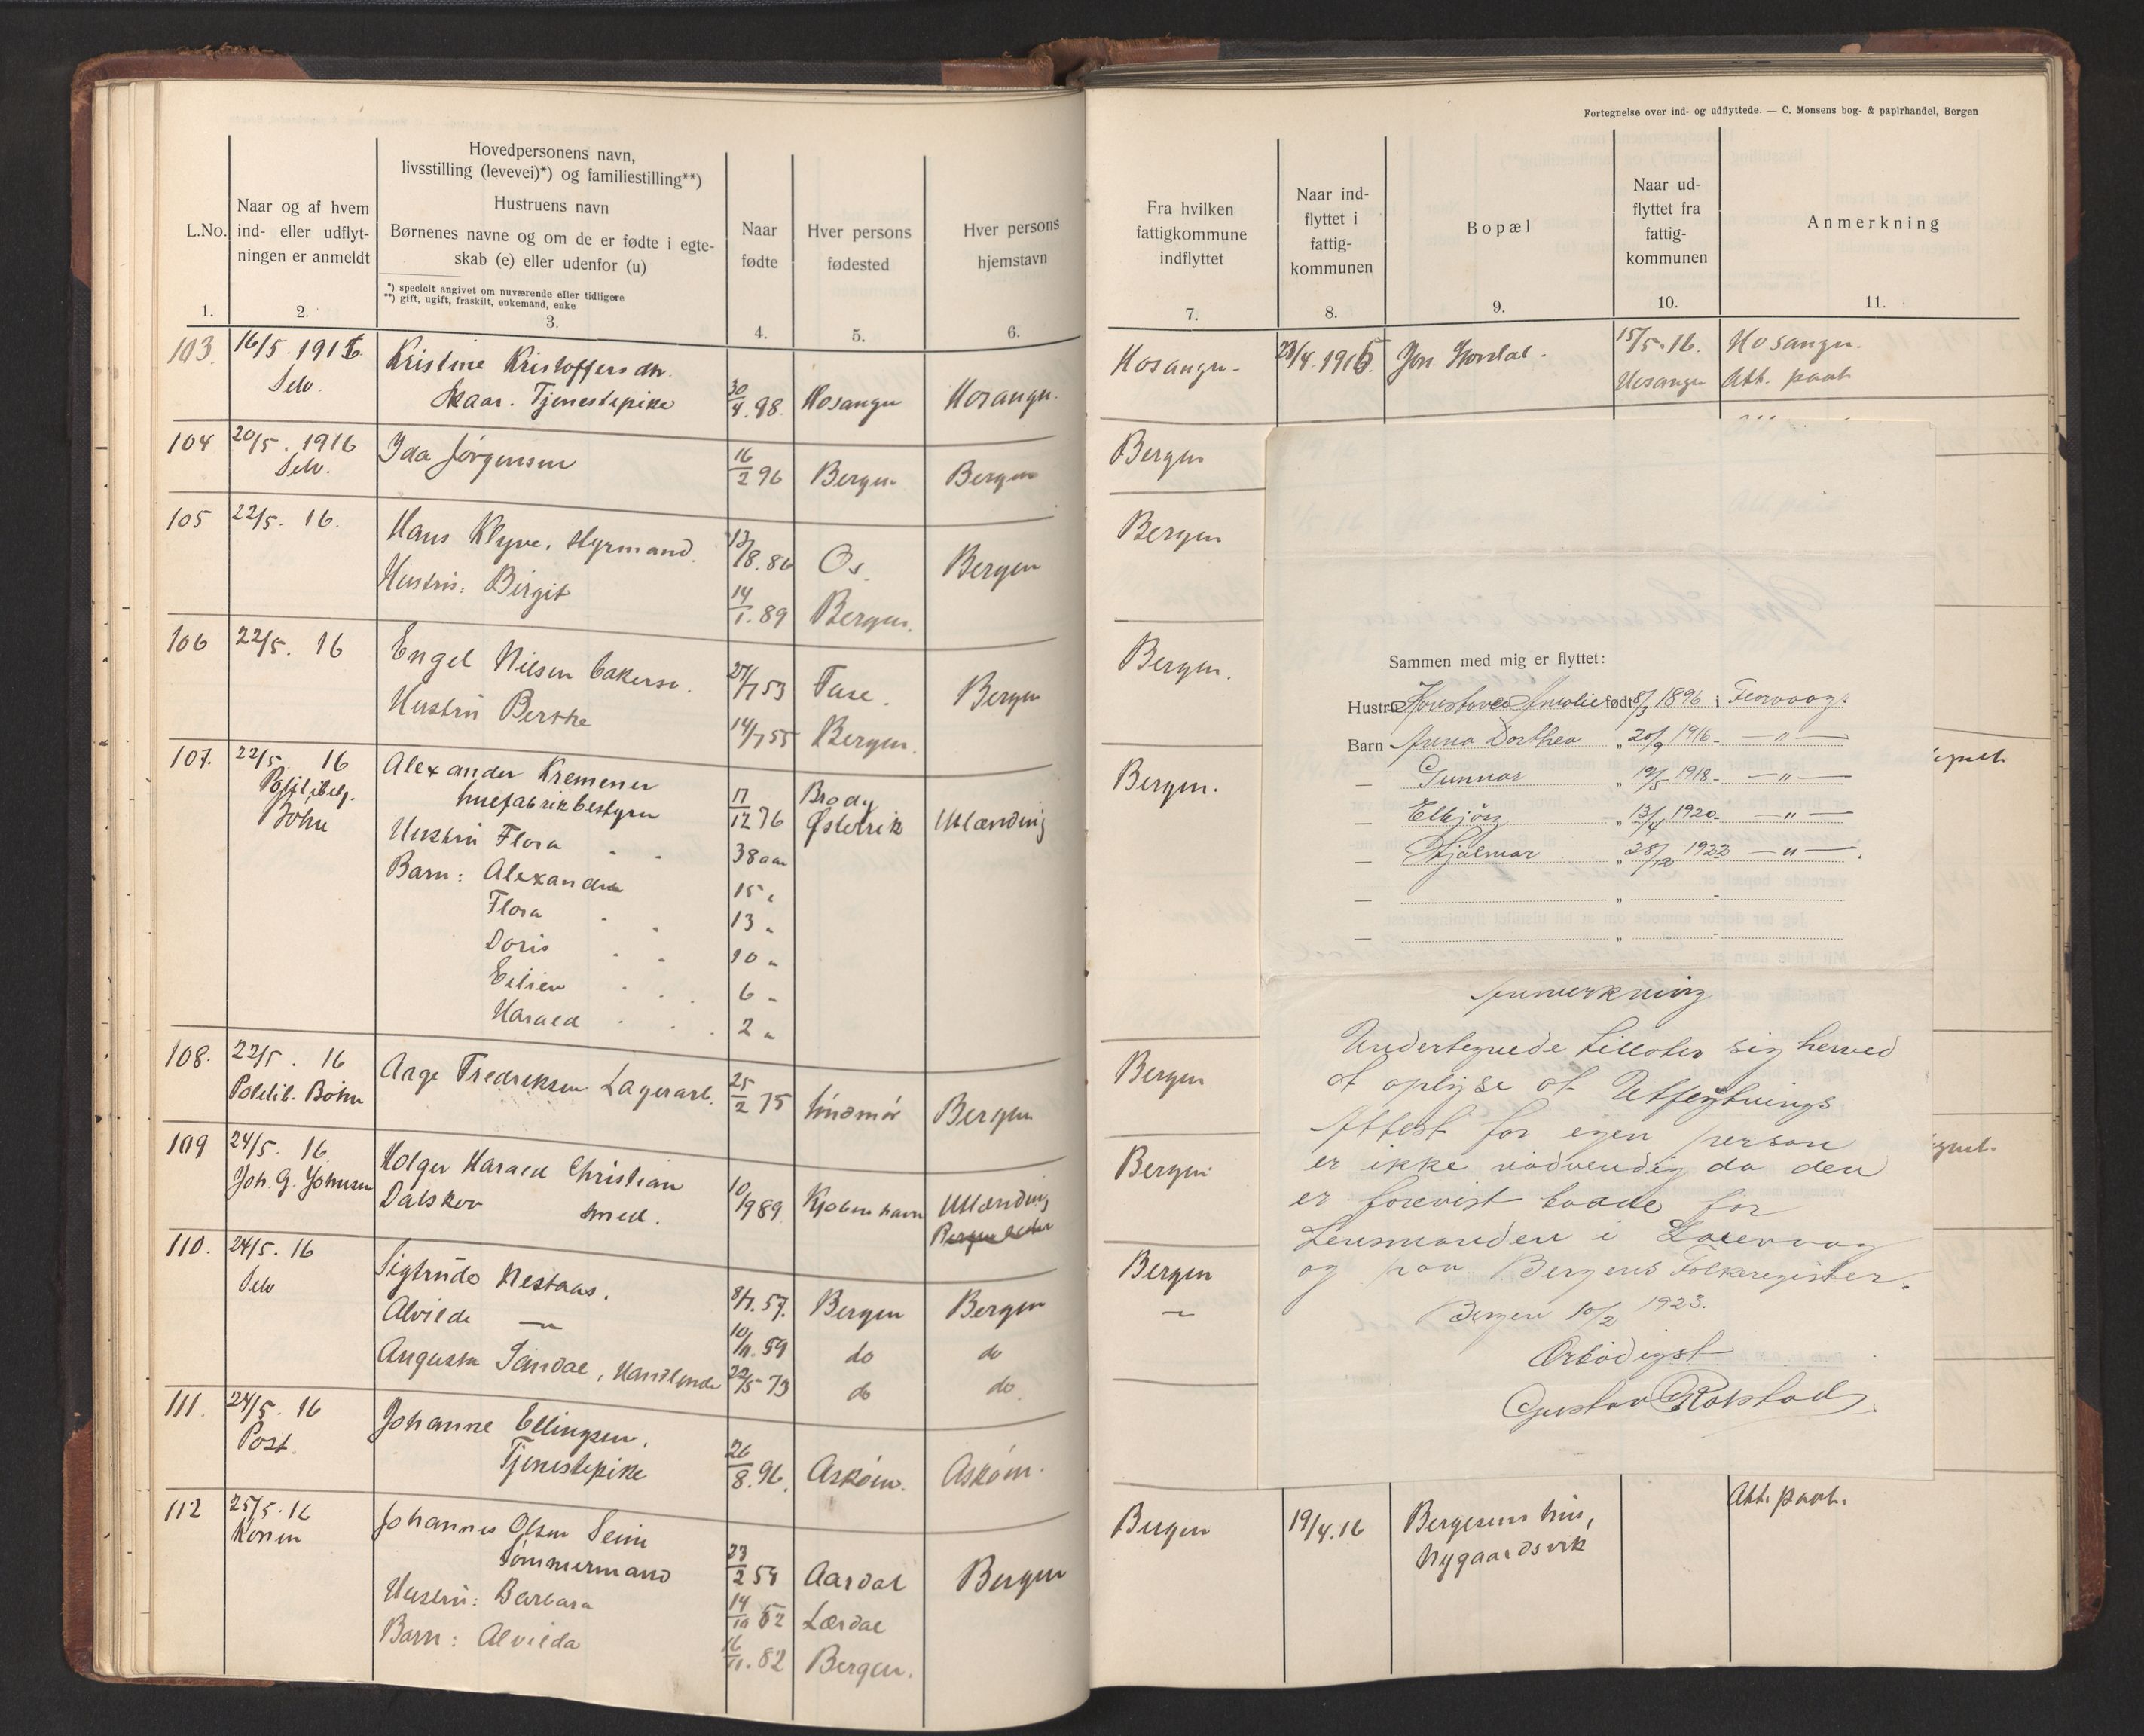 Fortegnelse over ind- og udflyttede. — C. Monsens bog- & papirhandel, Bergen
L.No.
1.
Naar og af hvem
ind- eller udflyt-
ningen er anmeldt
2.
Hovedpersonens navn,
livsstilling (levevei)*) og familiestilling**)
Hustruens navn
Børnenes navne og om de er fødte i egte-
skab (e) eller udenfor (u)
*) specielt angivet om nuværende eller tidligere
**) gift, ugift, fraskilt, enkemand, enke
3.
Naar
fødte
4.
Hver persons
fødested
5.
Hver persons
hjemstavn
6.
Fra hvilken
fattigkommune
indflyttet
7.
Naar ind-
flyttet i
fattig-
kommunen
8.
Bopæl
9.
Naar ud-
flyttet fra
fattig-
kommunen
10.
Anmerkning
11.
103 16/5 1916 Kristine Kristoffersdtr. Hosanger 23/4.1916 Jon 15/5.16. Hosanger.
Selv. Skaar. Tjenestepike 30/4.98. Hosanger Hosanger. Hosanger Att. paat
104 20/5.1916 Ida Jørgensen 16/2 96 Bergen Bergen Bergen
Selv.
105 22/5. 16. Hans Klyve, styrmand. 13/8.86 Os. Bergen Bergen
Hustru: Birgit 14/1.89 Bergen.
106 22/5. 16 Engel Nilsen 27/7 53 Fuse. Bergen Bergen.
Hustru Berthe 14/7 55 Bergen.
107. 22/5 16 Alexander Kremener Brody Bergen.
Politibetj. huefabrikbestyrer 17/12 76 Østerrik Utlænding
Bøhn Hustru Flora 38 aar
Barn: Alexandra 15 "
Flora 13 "
Doris 10 "
Eilien 6 "
Harald 2 "
108. 22/5. 16 Aage Fredriksen Lagerarb. 25/2 75 Søndmør Bergen Bergen
Politib. Bøhn
109 24/5. 16 Holger Harald Christian Bergen
Joh. G. Johnsen Dalskov Smed. 10/1 89 Kjøbenhavn Utlænding
110. 24/5. 16 Sigtrude Nestaas. 8/7.57. Bergen Bergen Bergen
Selv Alvilde —"— 10/11.59 do do —
Augusta Sandal, Handlende 22/5 73 do do
111. 24/5. 16 Johanne Ellingsen.
Post. Tjenestepike 26/8.96. Askøen. Askøen.
112 25/5.16 Johannes Olsen Seim Bergen 19/4.16 Bergesens hus, Att. paat.
Konen Tømmermand 23/2 54 Aardal Bergen Nygaardsvik
Hustru: Barbara 14/10 52 Lærdal
Barn: Alvilda 16/11.82 Bergen.
Sammen med mig er flyttet:
Hustru Amalie født 8/3 1896 i Florvaag.
Barn Anna Dorthea " 20/9 1916 - —"—
— Gunnar " 19/5 1918 - —"—
— Elbjørg " 13/4 1920 - —"—
— Hjalmar " 28/12 1922 —"—.
— " -
— " -
Anmerkning
Undertegnede tillater sig herved
at oplyse at Utflytnings
Attest for egen person
er ikke nødvendig da den
er forevist baade for
Lensmanden i
og paa Bergens Folkeregister.
Bergen 10/2 1923.
Ærbødigst
Gustav Rolstad.